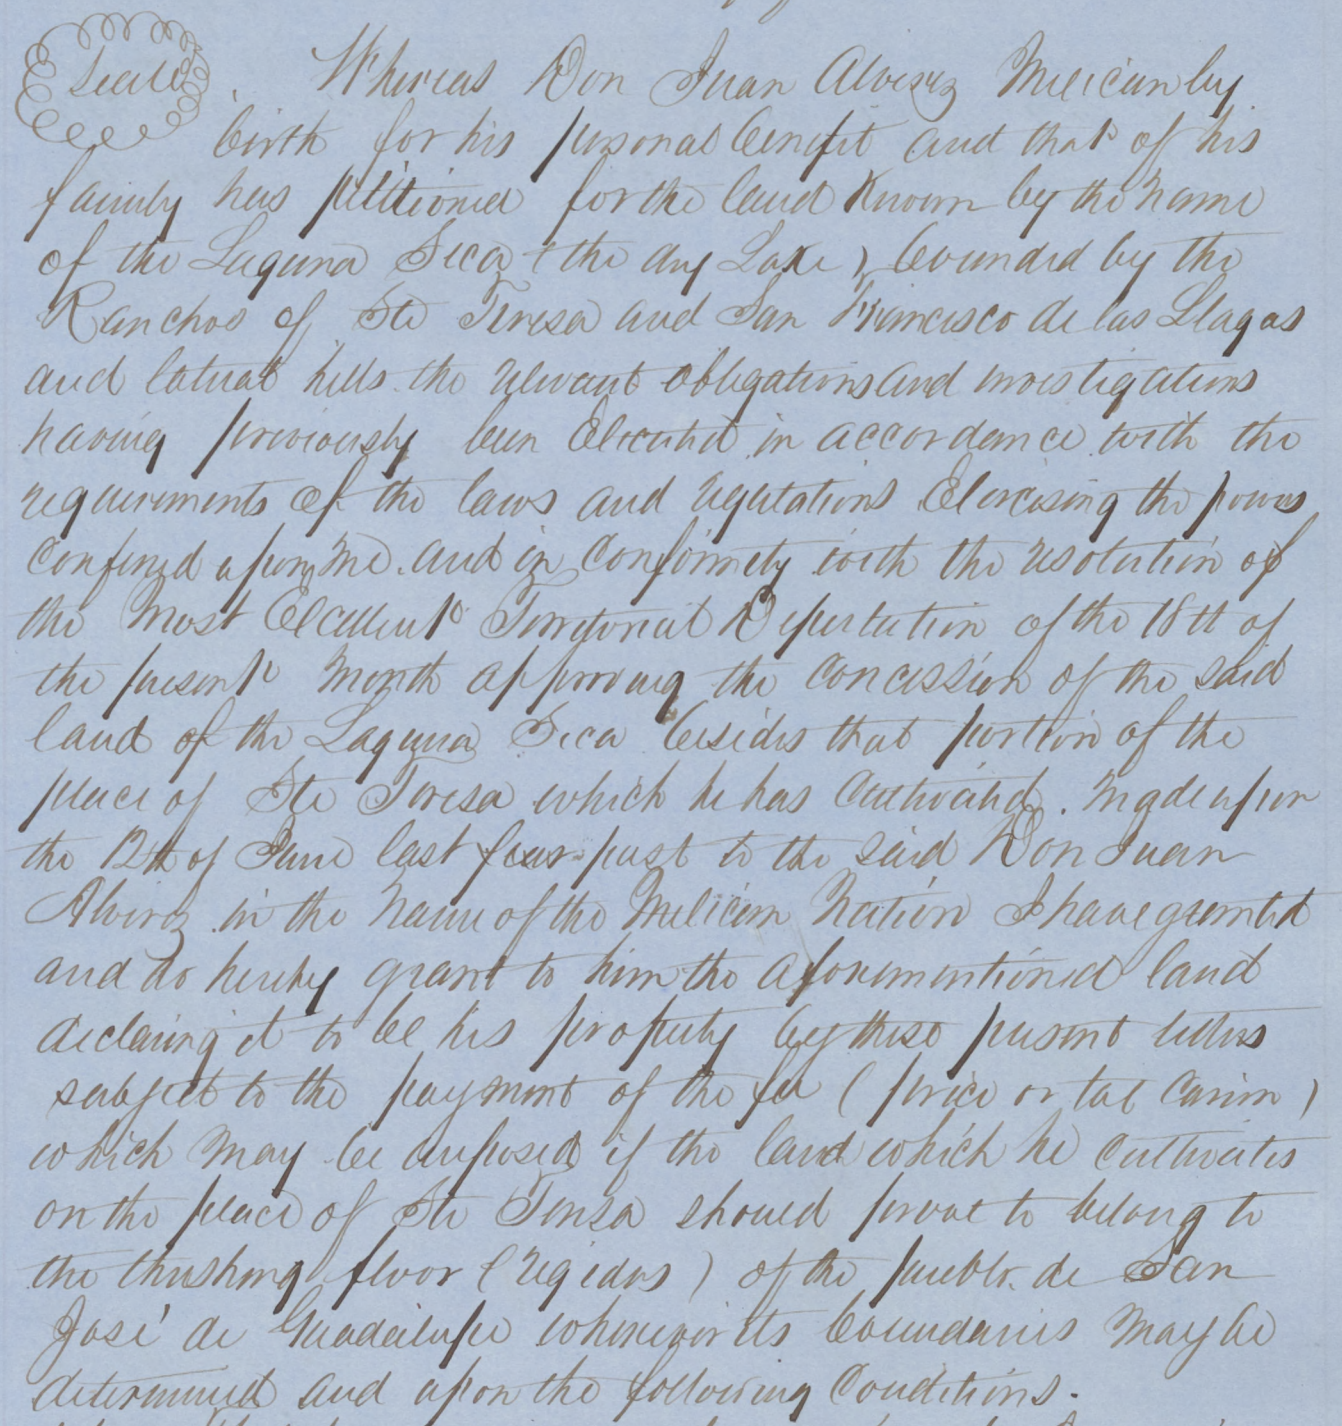 Seal
Whereas Don Juan Alvirez Mexican by
birth for his personal benefit and that of his
family has petitioned for the land known by the name
of the Laguna Seca ( the dry Lake ) bounded by the
Ranchos of Ste Teresa and San Francisco de las Llagas
and lateral hills the relevant obligations and investigations
having previously been Executed in accordance with the
requirements of the laws and regulations Exercising the powers
conferred upon me. and in conformity with the resolution of
the Most Excellent Territorial Deputation of the 18th of
the present month approving the concession of the said
land of the Laguna Seca besides that portion of the
place of Ste Teresa which he has Cultivated. Made upon
the 12th of June last past to the said Don Juan
Alvirez in the name of the Mexican Nation I have granted
and do hereby grant to him the aforementioned land
declaring it to be his property by these present letters
subject to the payment of the fee ( price or tax Canon )
which may be imposed if the land which he cultivates
on the place of Ste Teresa should prove to belong to
the thrashing floor ( ) of the pueblo de San
José de Guadalupe whenever its boundaries may be
determined and upon the following Conditions.